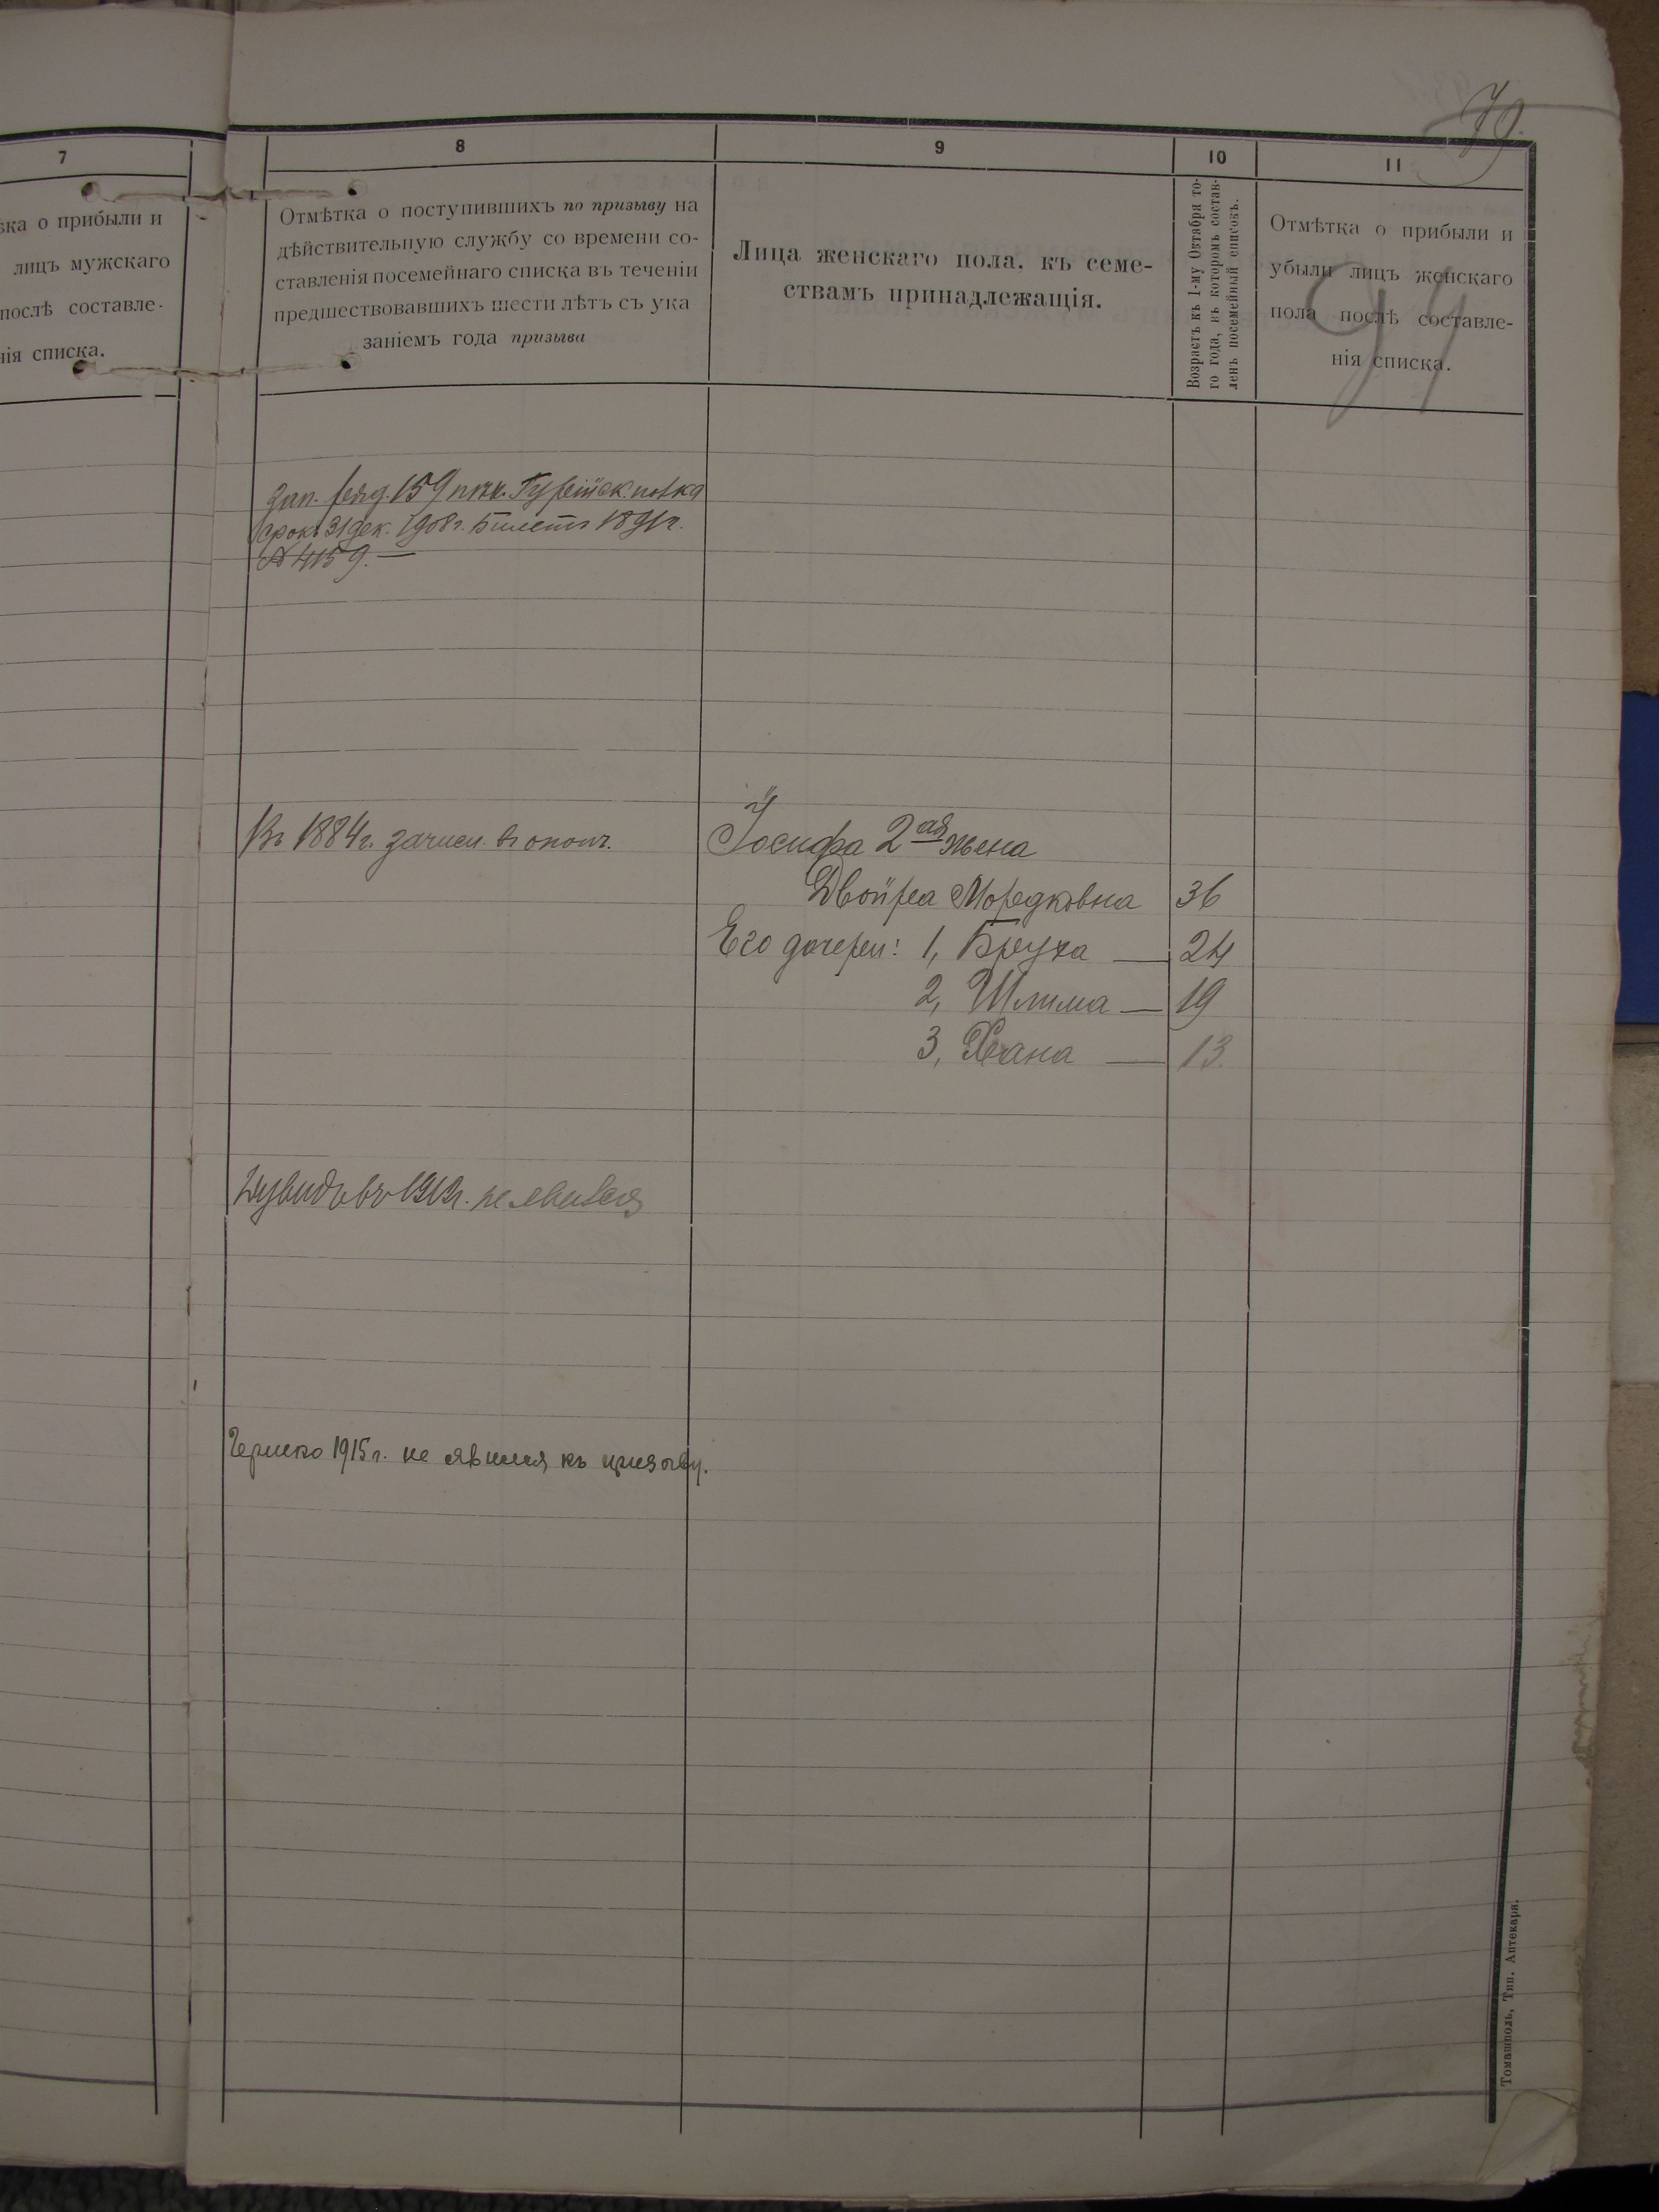 79.
7
ѣка о прибыли и
лицъ мужскаго
послѣ составле-
нія списка.
8
Отмѣтка о поступившихъ по призыву на
дѣйствительную службу со времени со-
ставленія посемейнаго списка въ теченіи
предшествовавшихъ шести лѣтъ съ ука
заніемъ года призыва
9
Лица женскаго пола, къ семе-
ствамъ принадлежащія.
10
Возрастъ къ 1-му Октября то-
го года, къ которомъ состав-
ленъ посемейный списокъ.
11
Отмѣтка о прибыли и
убыли лицъ женскаго
пола послѣ составле-
нія списка.
94
Зап. ряд. 159 пѣх. Гурійск. полка
срокъ 31 дек. 1908 г. Билетъ 1891 г.
№ 4159. —
Въ 1884 г. зачисл. в ополч.
Іосифа 2ая жена
Двойра Мордковна 36
Его дочери: 1, Бруха — 24
2, Шлима — 19
3, Хана — 13.
въ 1912 г. не явился
1915 г. не явился къ призыву.
Томашполь, Тип. Аптекаря.